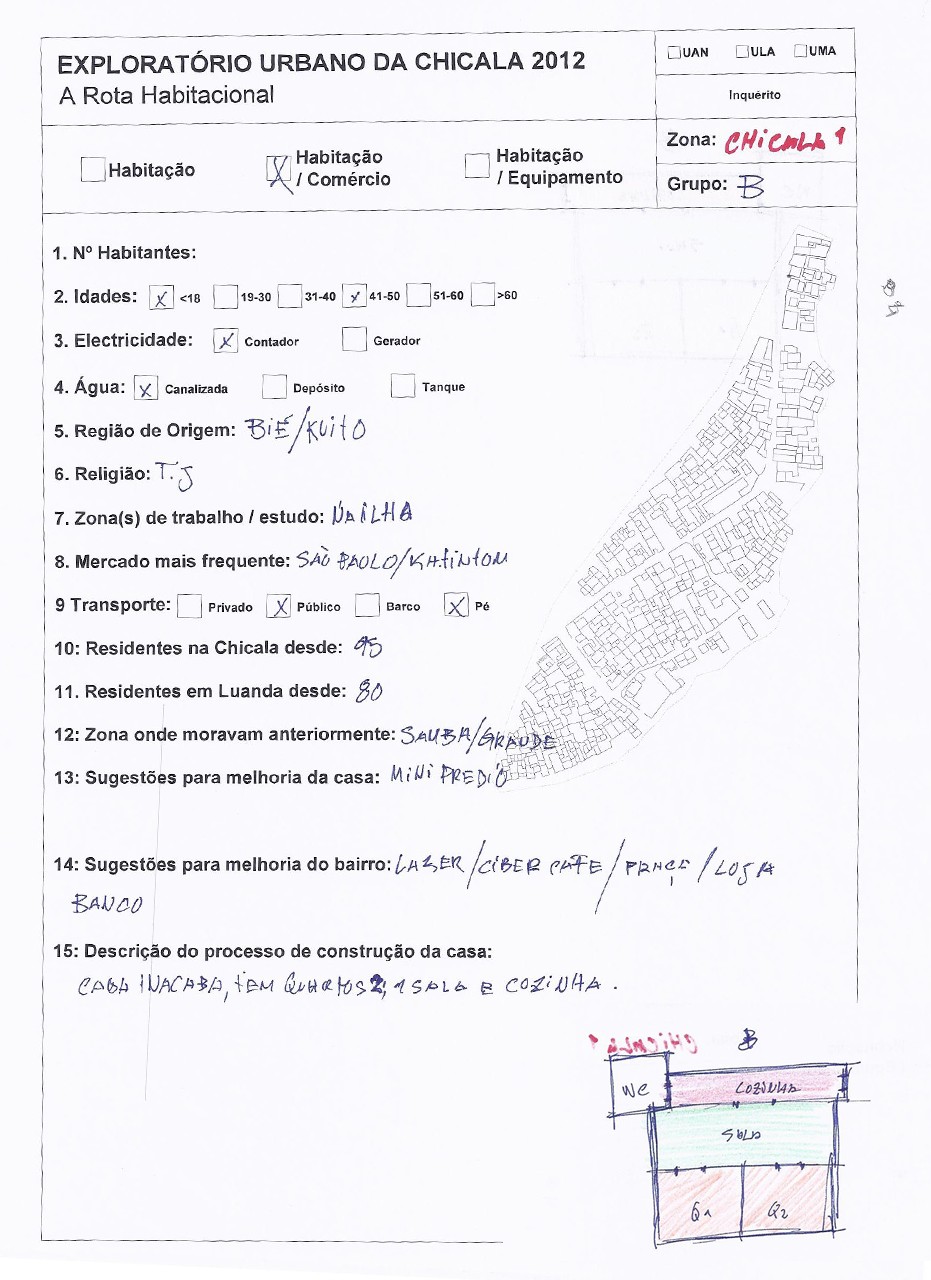 EXPLORATÓRIO URBANO DA CHICALA 2012
A Rota Habitacional
UAN ULA UMA
Inquérito
Zona: CHiCALA 1
Grupo: B
Habitação
Habitação / Comércio
Habitação / Equipamento
1. Nº Habitantes:
2. Idades: X <18 19-30 31-40 X 41-50 51-60 >60
3. Electricidade: X Contador Gerador
4. Água: X Canalizada Depósito Tanque
5. Região de Origem: BIÉ/KUITO
6. Religião: T.J
7. Zona(s) de trabalho / estudo: NA ILHA
8. Mercado mais frequente: SÃO PAULO/KATINTOM
9 Transporte: Privado X Público Barco X Pé
10: Residentes na Chicala desde: 95
11. Residentes em Luanda desde: 80
12: Zona onde moravam anteriormente: SAMBA/GRANDE
13: Sugestões para melhoria da casa: MINI PREDIO
14: Sugestões para melhoria do bairro: LAZER/CIBER CAFE/PRAÇE/LOJA
BANCO
15: Descrição do processo de construção da casa:
CASA INACABA, TEM QUARTOS 2, 1 SALA E COZINHA.
CHiCALA 1 B
WC COZINHA
SALA
Q1 Q2